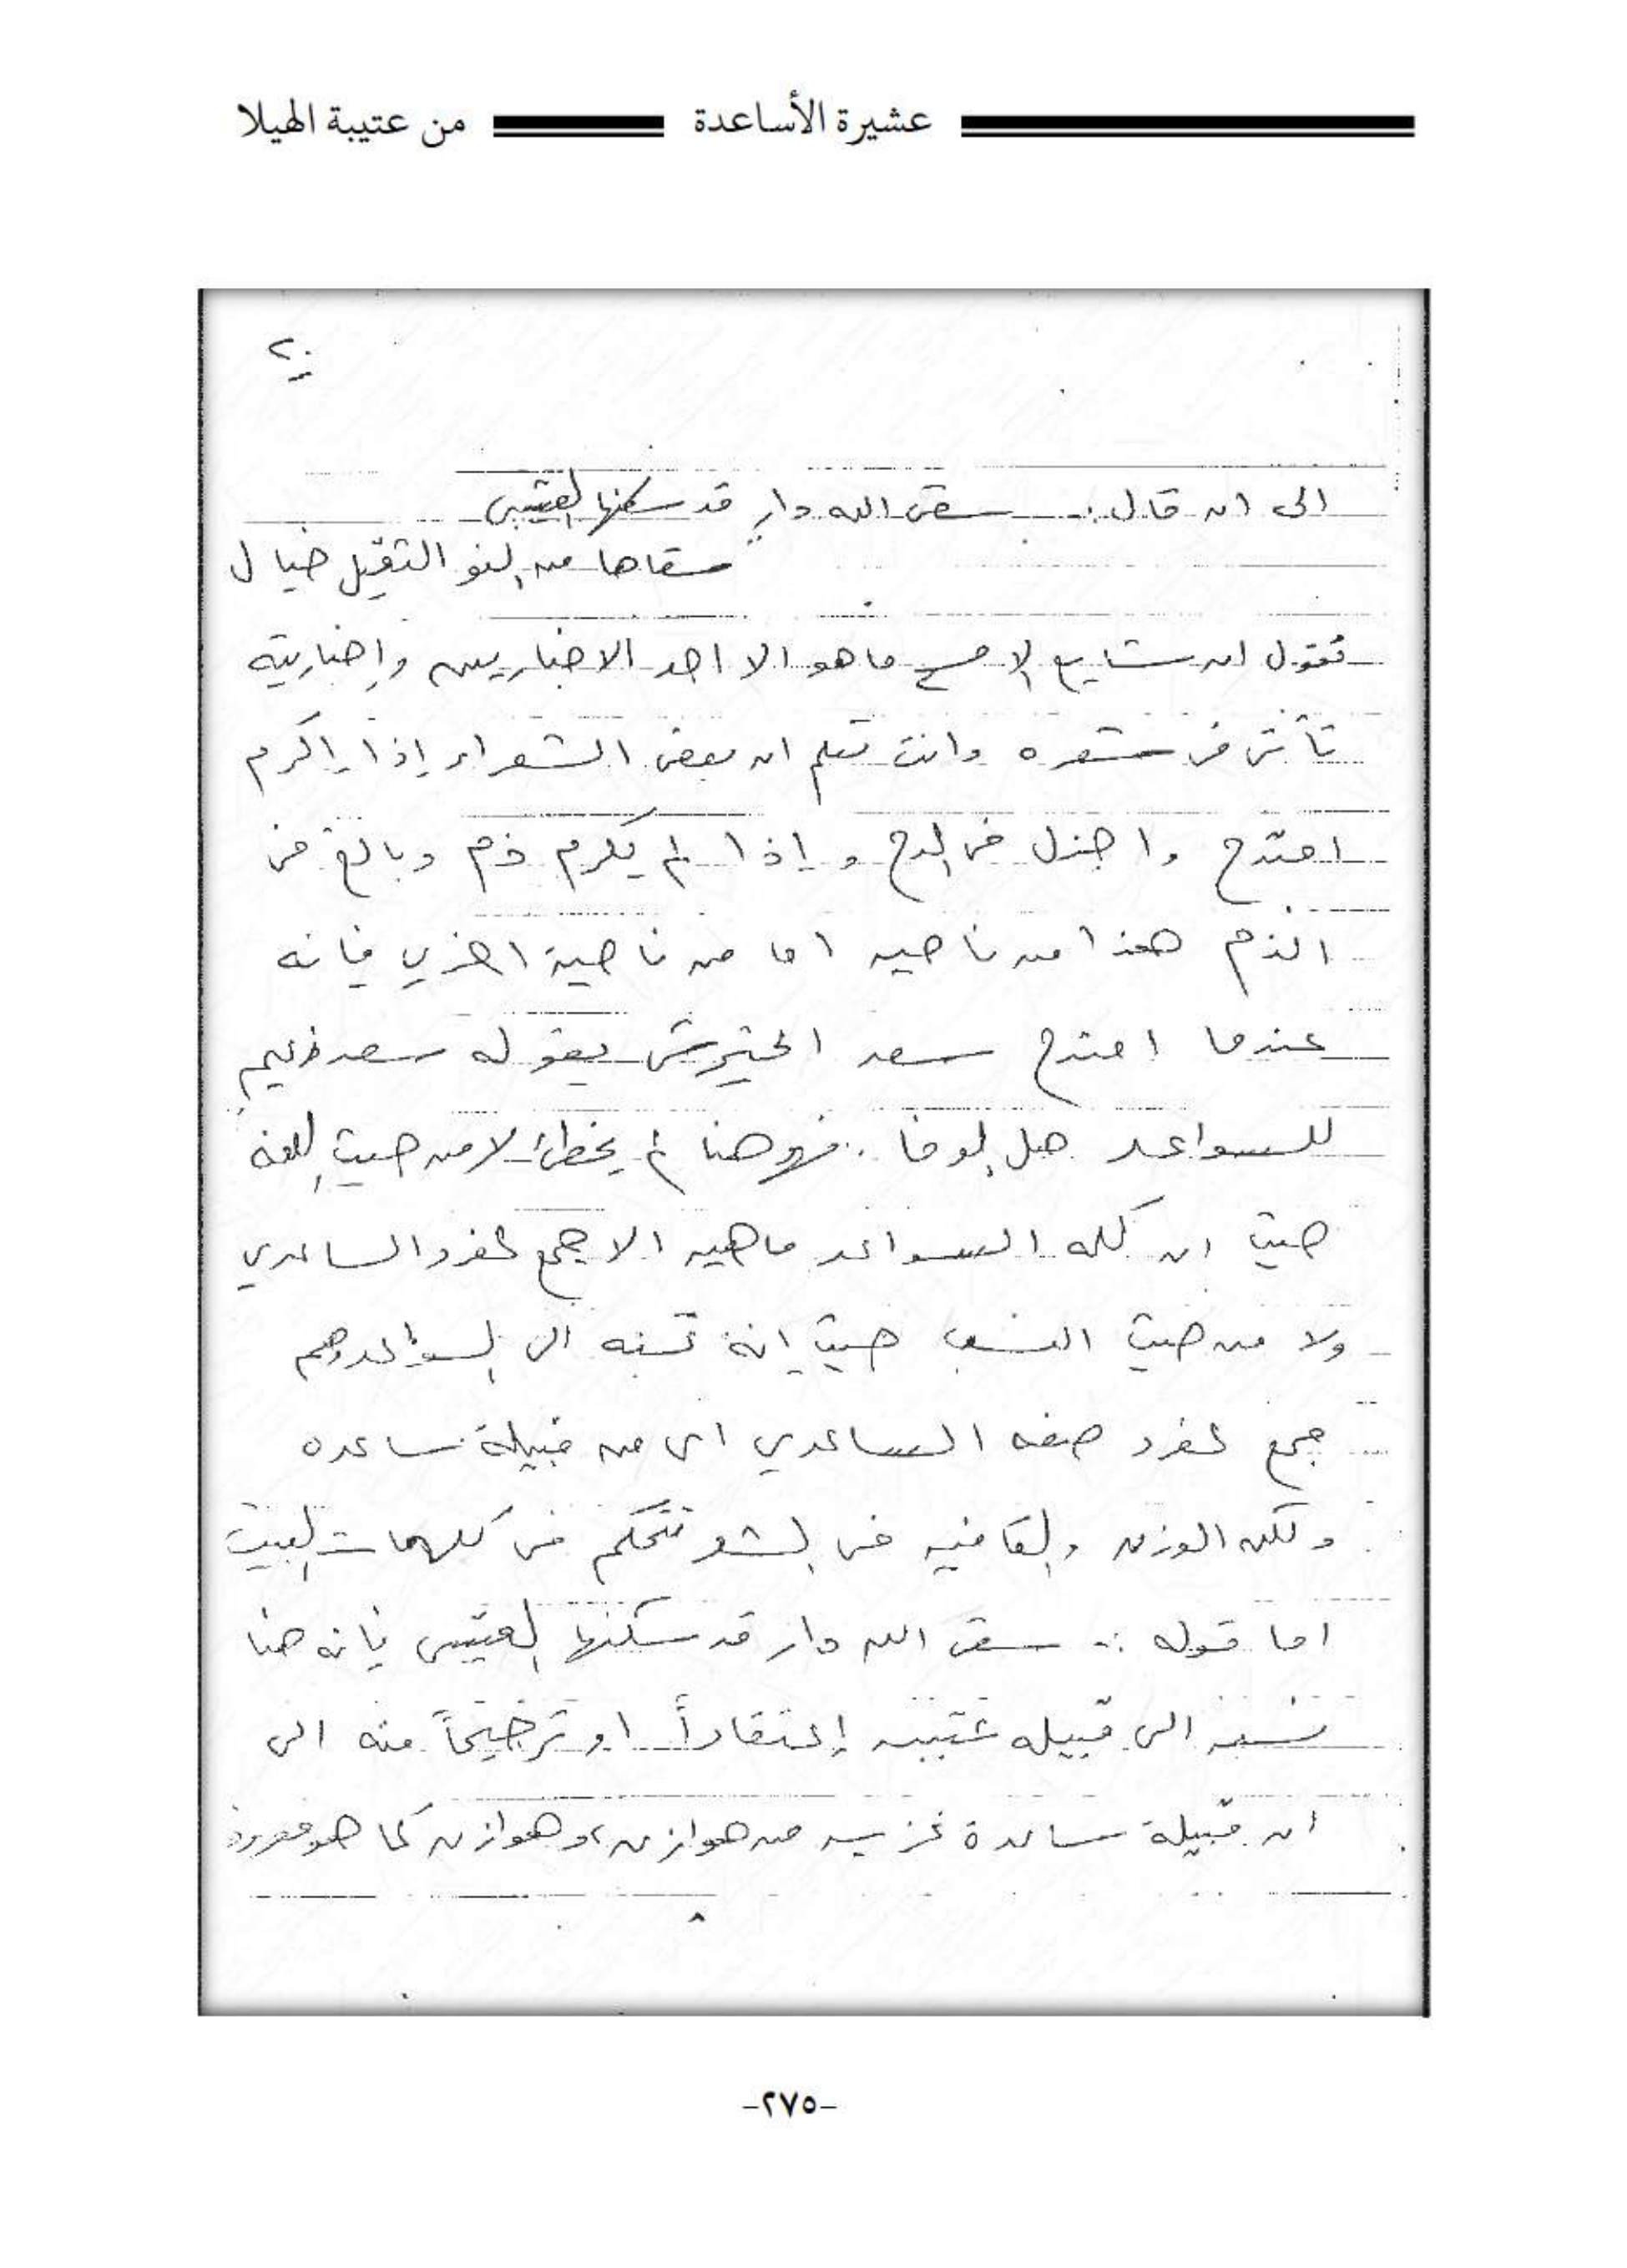 عشيرة الأساعدة من عتيبة الهيلا
٢٠
الى ان قال :- سقى الله دارٍ قد سكنها العتيبي
سقاها من النو الثقيل خيال
فنقول ان شايع الامسح ماهو الا احد الاخباريين وإخباريته
تأتي في شعره وانت تعلم ان بعض الشعراء إذا اكرم
امتدح واجزل في المدح وإذا لم يكرم ذم وبالغ في
الذم هذا من ناحيه اما من ناحية اخرى فانه
عندما امتدح سعد الحتيرش بقوله سعد زعيمٍ
للسواعد هل الوفا . فهو هنا لم يخطئ لا من حيث اللغه
حيث ان كلمه السواعد ماهيه الا جمع لمفرد الساعدي
ولا من حيث النسب حيث إنه نسبه الى السواعد وهم
جمع لمفرد صفه الساعدي اي من قبيلة ساعده
ولكن الوزن والقافيه في الشعر تتحكم في كلمات البيت
اما قوله :- سقى الله دار قد سكنها العتيبي فإنه هنا
نسبه الى قبيله عتيبه إعتقاداً او ترجيحاً منه الى
أن قبيلة ساعدة غزيه من هوازن، وهوازن كما هو معروف
٨
-٢٧٥-